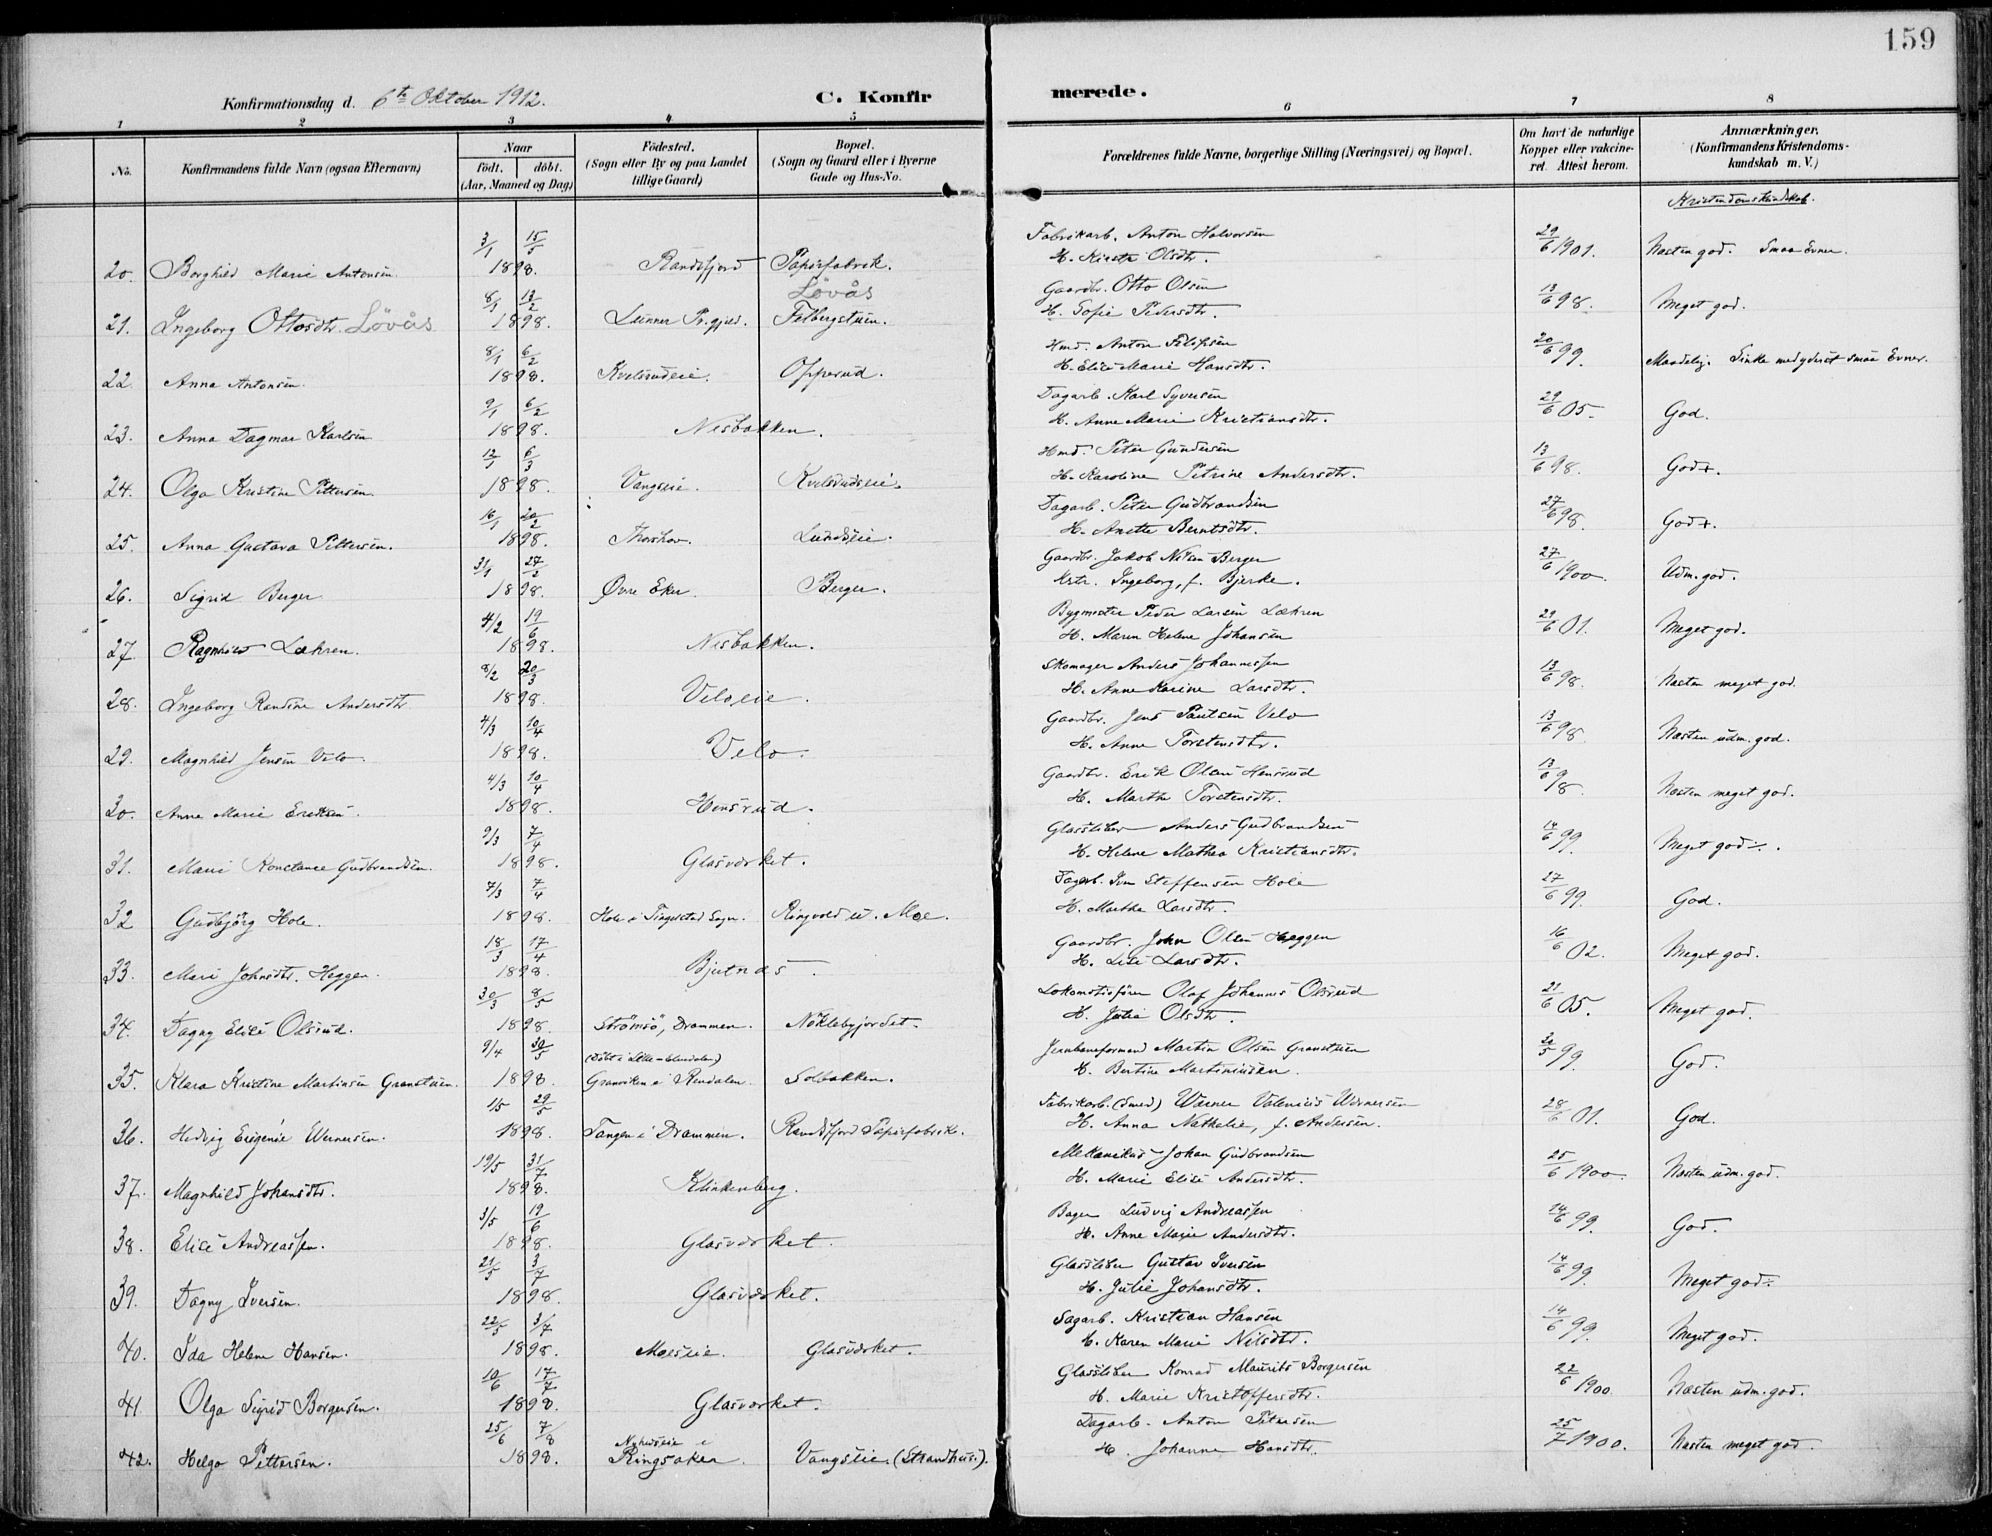 159
Konfirmationsdag d. 6te Oktober 1912. C. Konfirmerede.
1 2 3 4 5 6 7 8
No. Konfirmandens fulde Navn (ogsaa Efternavn) Naar født. døbt. (Aar, Maaned og Dag) Fødested. (Sogn eller By og paa Landet tillige Gaard) Bopæl. (Sogn og Gaard eller i Byerne Gade og Hus-No. Forældrenes fulde Navne, borgerlige Stilling (Næringsvei) og Bopæl. Om havt de naturlige Kopper eller vakcineret. Attest herom. Anmærkninger. (Konfirmandens Kristendomskundskab m. V.)
Kristendomskundskab.
20. Borghild Marie Antonsen. 3/1 15/5 1898. Randsfjord Papirfabrik. Fabrikarb. Anton Halvorsen
H. Kirsti Olsdtr. 29/6 1901. Næsten god. Smaa Evner.
21. Ingeborg Ottosdtr. Lövås 8/1 13/2 1898. Lunner Pr.gjeld. Lövås Felbergstuen. Gaardbr. Otto Olsen
H. Sofie Pedersdtr. 13/6 98. Meget god.
22. Anna Antonsen. 8/1 6/2 1898. Kvelsrudeie. Opperud. Hmd. Anton Filipsen
H. Elise Marie Hansdtr. 20/6 99. Maadelig. Sinke med yderst smaa Evner.
23. Anna Dagmar Karlsen 9/1 6/2 1898. Nesbakken. Dagarb. Karl Syversen
H. Anne Marie Kristiansdtr. 29/6 05. God.
24. Olga Kristine Pettersen. 12/1 6/3 1898. Vangseie. Kvelsrudseie. Hmd. Peter Gundersen
H. Karoline Petrine Andersdtr. 13/6 98. God+.
25. Anna Gustava Pettersen. 16/1 20/2 1898. Thorshov. Lundseie. Dagarb. Peter Gudbrandsen
H. Anette Berntsdtr. 27/6 98. God+.
26. Sigrid Berger. 31/1 27/2 1898. Øvre Eker. Berger. Gaardbr. Jakob Nilsen Berger
Hstr. Ingeborg, f. Bjerke. 27/6 1900. Udm. god.
27. Ragnhild Læhren. 4/2 19/6 1898. Nesbakken. Bygmester Peder Larsen Læhren
H. Maren Helene Johansen 29/6 01. Meget god.
28. Ingeborg Randine Andersdtr. 8/2 20/3 1898. Veloeie. Skomager Anders Johannessen
H. Anne Karine Larsdtr. 13/6 98. Næsten meget god.
29. Magnhild Jensen Velo. 4/3 10/4 1898. Velo. Gaardbr. Jens Paulsen Velo
H. Anne Torstensdtr. 13/6 98. Næsten udm. god.
30. Anne Marie Eriksen. 4/3 10/4 1898. Hensrud. Gaardbr. Erik Olsen Hensrud
H. Marthe Torstensdtr. 13/6 98. Næsten meget god.
31. Marie Konstance Gudbrandsen. 9/3 7/4 1898. Glasværket. Glassliber Anders Gudbrandsen
H. Helene Mathea Kristiansdtr. 14/6 99. Meget god÷.
32 Gudbjörg Hole. 7/3 7/4 1898. Hole i Tingelstad Sogn. Ringvold u. Moe. Dagarb. Iver Steffensen Hole
H. Marthe Larsdtr. 27/6 99. God.
33. Mari Johnsdtr. Heggen. 18/3 17/4 1898. Bjutnes. Gaardbr. John Olsen Heggen
H. Lise Larsdtr. 16/6 02. Meget god.
34. Dagny Elise Olsrud. 30/3 8/5 1898. Strömsö, Drammen. Nöklebyjordet. Lokomotivförer Olaf Johannes Olsrud
H. Julie Olsdtr. 21/6 05. Meget god.
35. Klara Kristine Martinsen Granstuen. 9/4 30/5 1898. (Döbt i Lille-Elvedalen) Granviken i Rendalen. Solbakken. Jernbaneformand Martin Olsen Granstuen
H. Bertine Martiniusen. 20/5 99. God.
36. Hedvig Eugenie Wernersen. 1/5 29/5 1898. Tangen i Drammen. Randsfjord Papirfabrik. Fabrikarb. (Smed) Werner Valenius Wernersen
H. Anna Nathalie, f. Andersen. 28/6 01. God.
37. Magnhild Johansdtr. 19/5 31/7 1898. Klinkenberg. Mekanikus Johan Gudbrandsen
H. Marie Elise Andersdtr. 25/6 1900. Næsten udm. god.
38. Elise Andreassen. 3/5 19/6 1898. Glasværket. Bager Ludvig Andreassen
H. Anne Marie Andersdtr. 14/6 99. God.
39. Dagny Iversen. 21/5 3/7 1898. Glasværket. Glassliber Gustav Iversen
H. Julie Johansdtr. 14/6 99. Meget god÷
40. Ida Helene Hansen. 22/5 3/7 1898. Moeseie. Glasværket. Sagarb. Kristian Hansen
H. Karen Marie Nilsdtr. 14/6 99. Meget god.
41 Olga Sigrid Borgersen. 10/6 17/7 1898. Glasværket. Glassliber Konrad Maurits Borgersen
H. Marie Kristoffersdtr. 22/6 1900. Næsten udm. god.
42. Helga Pettersen. 25/6 7/8 1898. Ringsaker. Vangseie. (Strandhus.). Dagarb. Anton Petersen
H. Johanne Hansdtr. 25/7 1900. Næsten meget god.